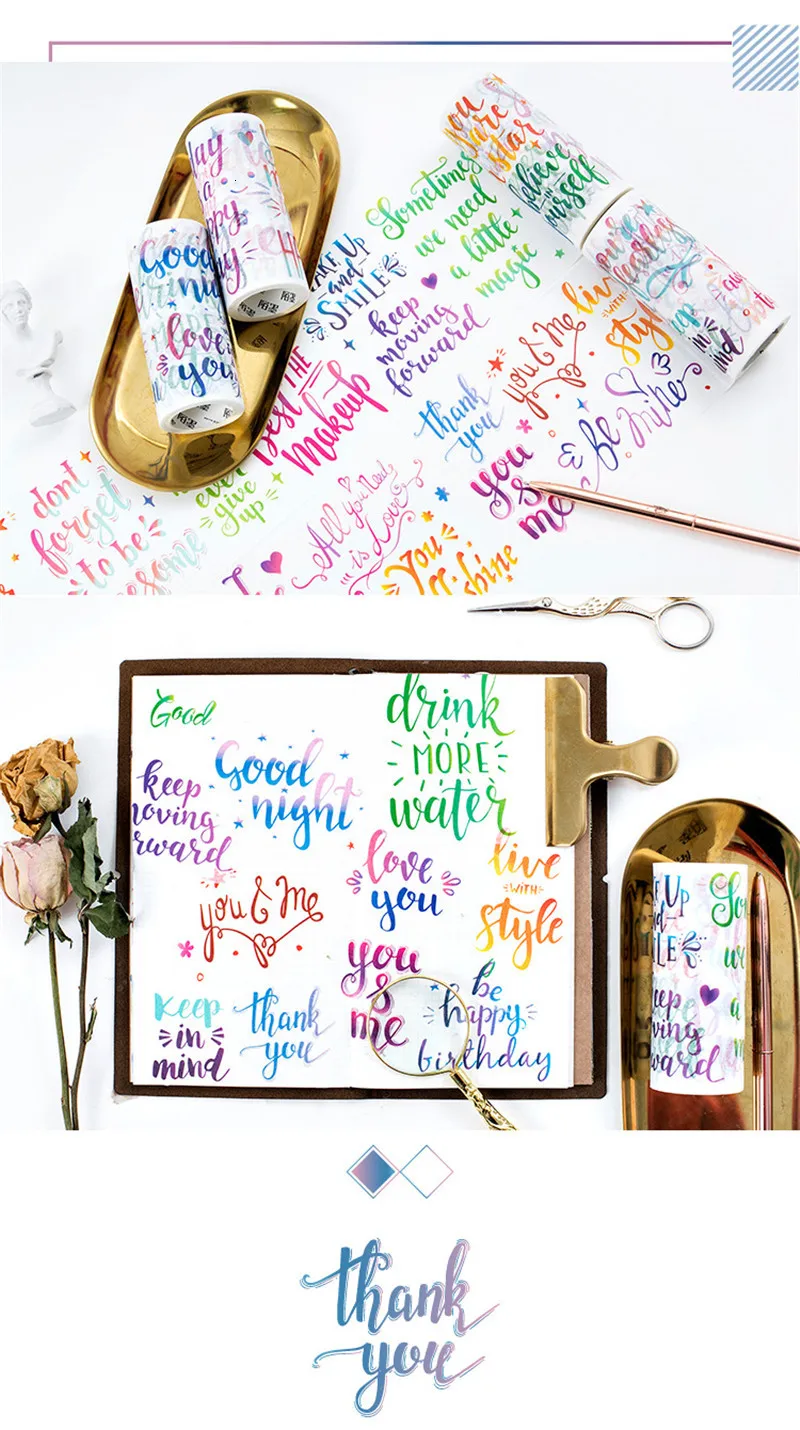 you
are
star
believe
in
yourself
Good
love
you
Sometimes
we need
a little
magic
and
SMILE
keep
moving
forward
you & Me
live
WITH
style
Best THE
Makeup
thank
you
be
Mine
you
&
me
dont
forget
to be
give
up
All you Need
is Love
You
shine
Good
drink
MORE
water
Good
night
keep
moving
love
you
live
WITH
style
you & Me
you
&
me
keep
in
mind
thank
you
be
happy
birthday
thank
you